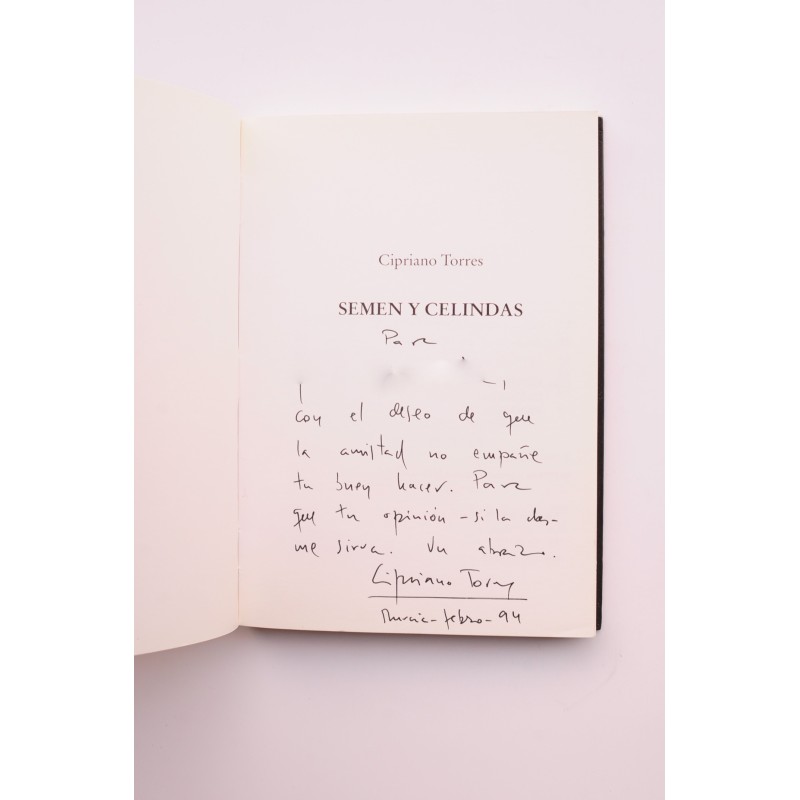 Cipriano Torres
SEMEN Y CELINDAS
Para
con el deseo de que
la amistad no empañe
tu buen hacer. Para
que tu opinión - si la das -
me sirva. Un abrazo.
Cipriano Torres
Murcia - febro - 94